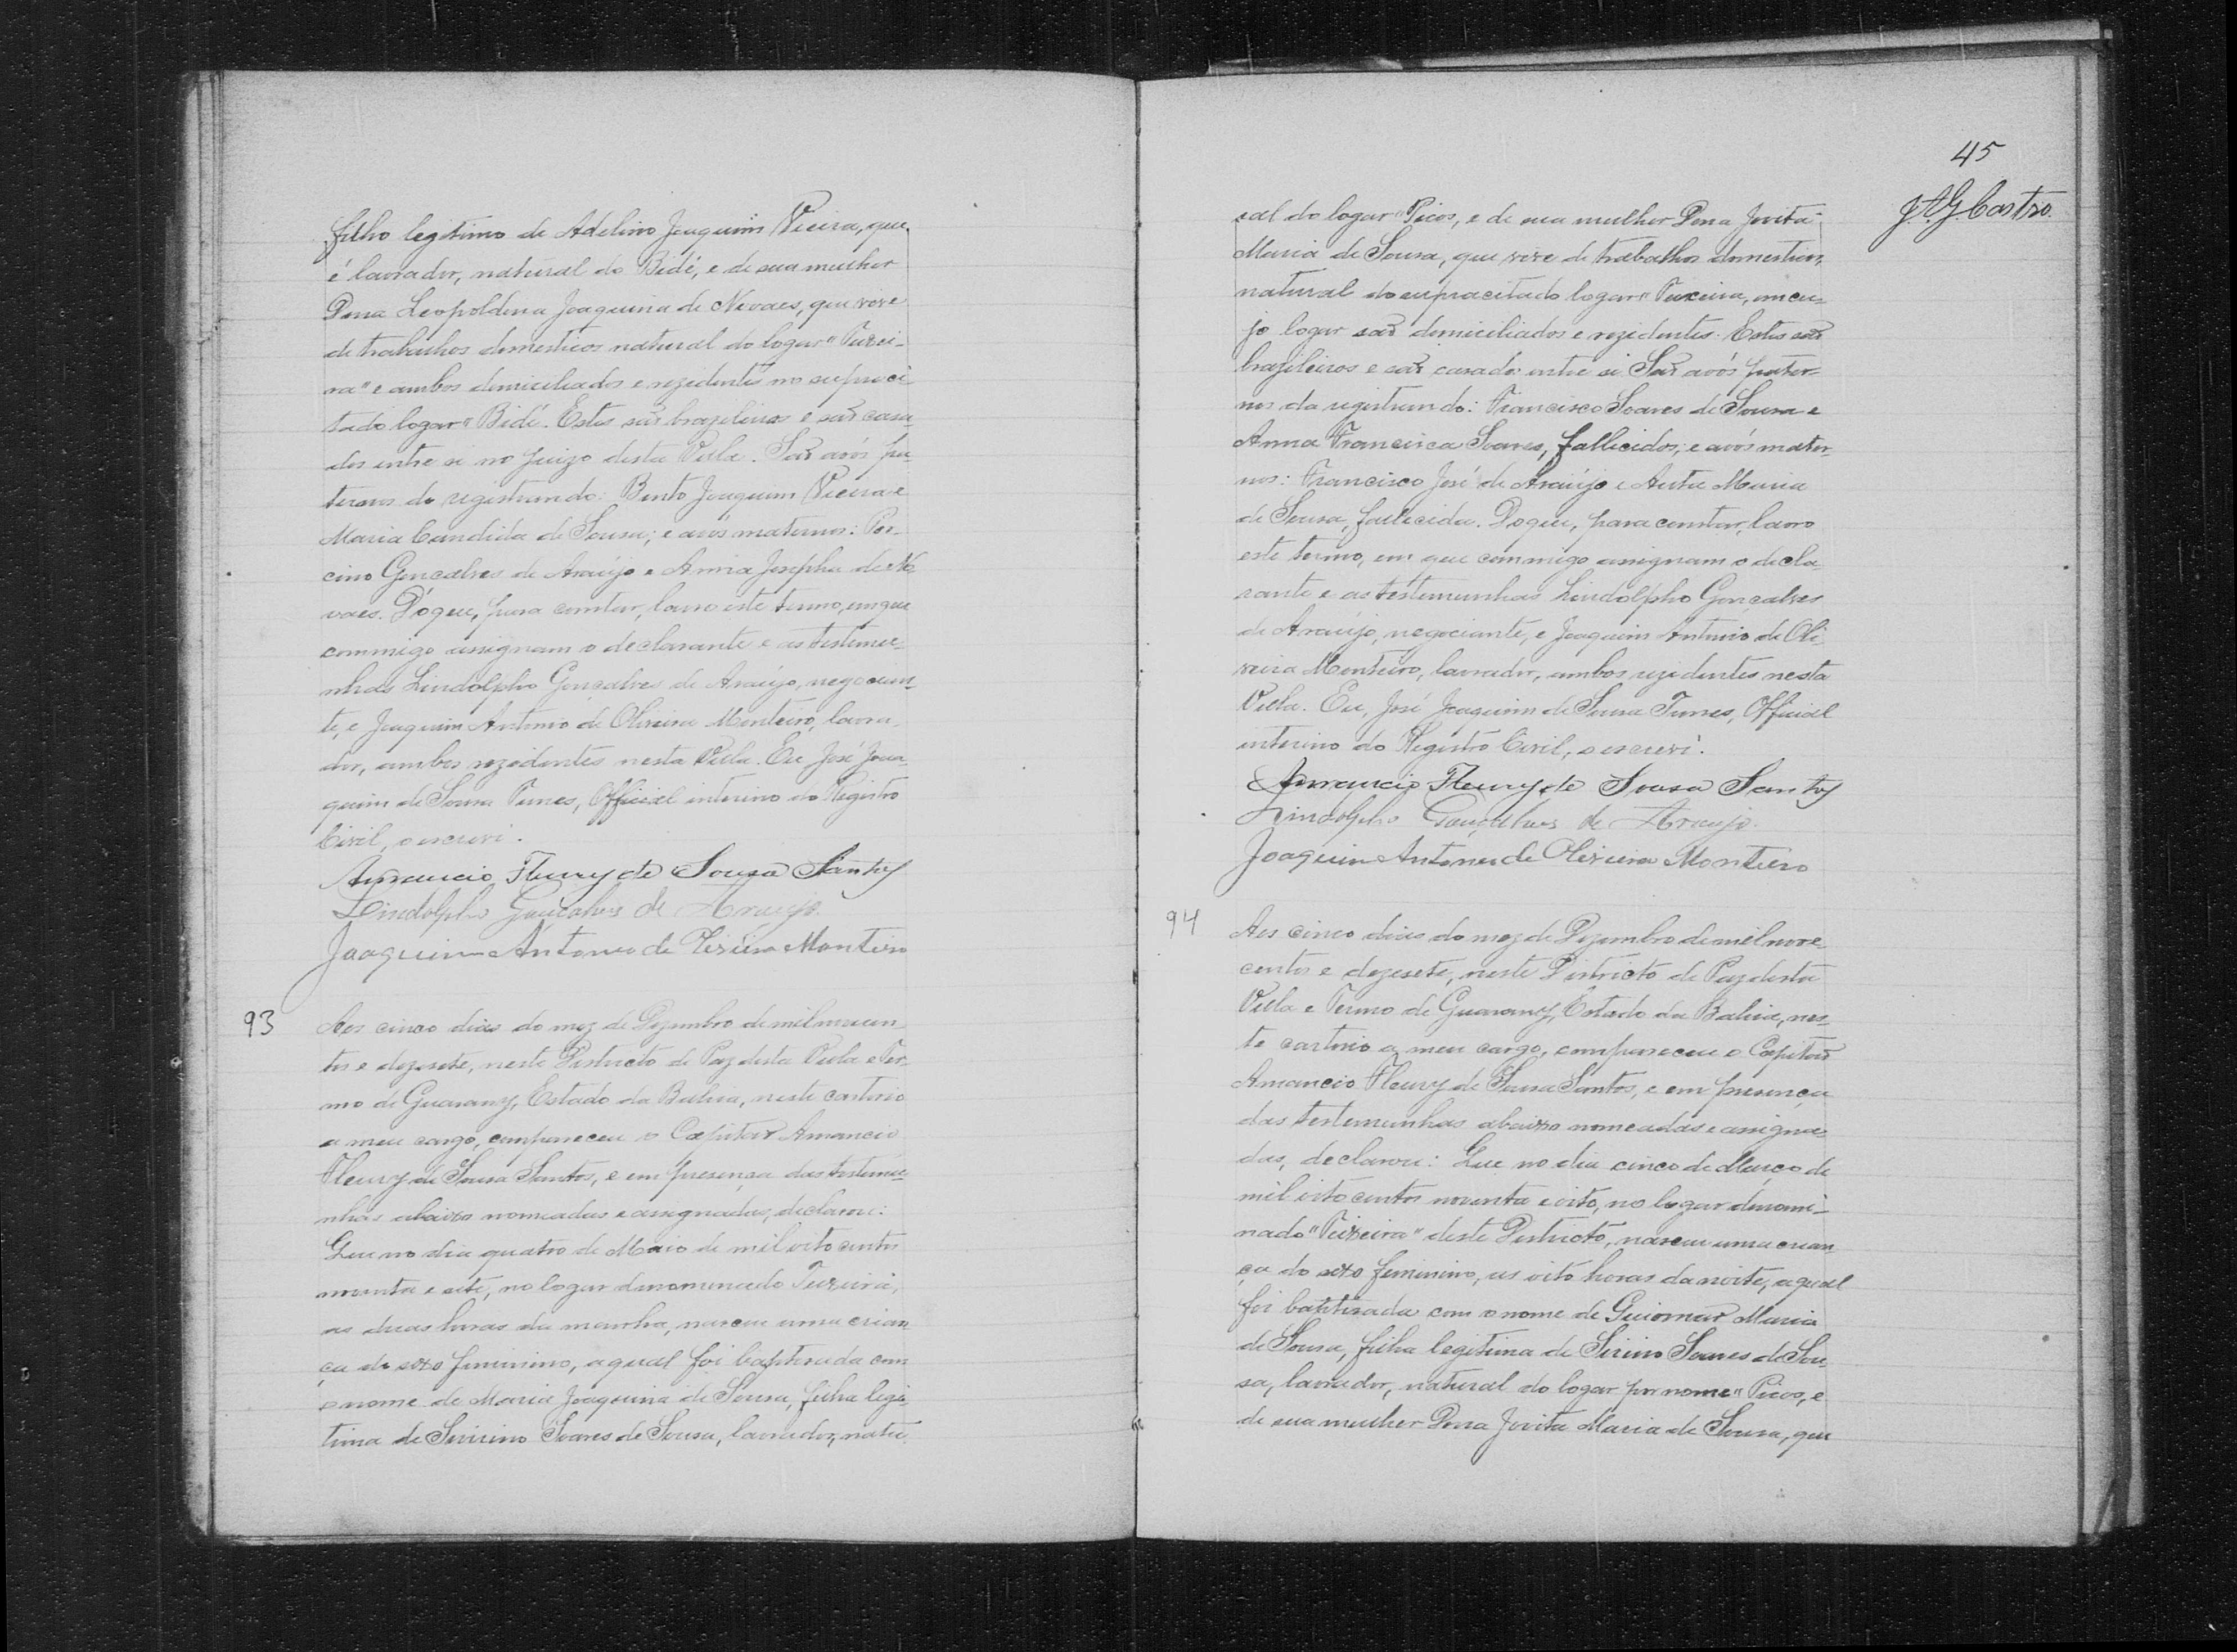 filho legitimo de Adelino Joaquim Vieira, que
é lavrador, natural do Bidé, e de sua mulher
Dona Leopoldina Joaquina de Novaes, que vive
de trabalhos domesticos natural do logar "Teixei-
ra" e ambos domiciliados e rezidentes no supraci-
tado logar "Bidé. Estes são brazileiros e são casa-
dos entre si no juizo desta Villa. São avós pa-
ternos do registrando: Bento Joaquim Vieira e
Maria Candida de Sousa; e avós maternos: Por-
cino Gonçalves de Araújo e Anna Josepha de No-
vaes. Do que, para constar, lavro este termo, em que
commigo assignam o declarante e as testemu-
nhas Lindolpho Gonçalves de Araújo, negocian-
te, e Joaquim Antonio de Oliveira Monteiro, lavra-
dor, ambos rezidentes nesta Villa. Eu José Joa-
quim de Sousa Tunes, Official interino do Registro
Civil, o escrevi.
Amancio Fleury de Sousa Santos
Lindolpho Gonçalves de Araujo.
Joaquim Antonio de Oliveira Monteiro
93
Aos cinco dias do mez de Dezembro de mil novecen-
tos e dezesete, neste Districto de Paz desta Villa e Ter-
mo de Guarany, Estado da Bahia, neste cartorio
a meu cargo, compareceu o Capitão Amancio
Fleury de Sousa Santos, e em presença das testemu-
nhas abaixo nomeadas e assignadas, declarou:
Que no dia quatro de Maio de mil oito centos
noventa e sete, no logar denominado Teixeira,
as duas horas da manhã, nasceu uma crian-
ça do sexo feminino, a qual foi baptisada com
o nome de Maria Joaquina de Sousa, filha legi-
tima de Sirino Soares de Sousa, lavrador, natu-
45
J.A.G. Castro.
ral do logar "Picos, e de sua mulher Dona Jovita
Maria de Sousa, que vive de trabalhos domesticos,
natural do supracitado logar "Teixeira, em cu-
jo logar são domiciliados e rezidentes. Estes são
brazileiros e são casados entre si. São avós pater-
nos da registrando: Francisco Soares de Sousa e
Anna Francisca Soares, fallecidos; e avós mater-
nos: Francisco José de Araújo e Auta Maria
de Sousa, fallecida. Do que, para constar, lavro
este termo, em que commigo assignam o decla-
rante e as testemunhas Lindolpho Gonçalves
de Araújo, negociante, e Joaquim Antonio de Oli-
veira Monteiro, lavrador, ambos rezidentes nesta
Villa. Eu, José Joaquim de Sousa Tunes, Official
interino do Registro Civil, o escrevi.
Amancio Fleury de Sousa Santos
Lindolpho Gonçalves de Araujo.
Joaquim Antonio de Oliveira Monteiro
94
Aos cinco dias do mez de Dezembro de mil nove-
centos e dezesete, neste Districto de Paz desta
Villa e Termo de Guarany, Estado da Bahia, nes-
te cartorio a meu cargo, compareceu o Capitão
Amancio Fleury de Sousa Santos, e em presença
das testemunhas abaixo nomeadas e assigna-
das, declarou: Que no dia cinco de Março de
mil oito centos noventa e oito, no logar denomi-
nado "Teixeira" deste Districto, nasceu uma crian-
ça do sexo feminino, as oito horas da noite, a qual
foi baptisada com o nome de Guiomar Maria
de Sousa, filha legitima de Sirino Soares de Sou-
sa, lavrador, natural do logar por nome "Picos, e
de sua mulher Dona Jovita Maria de Sousa, que